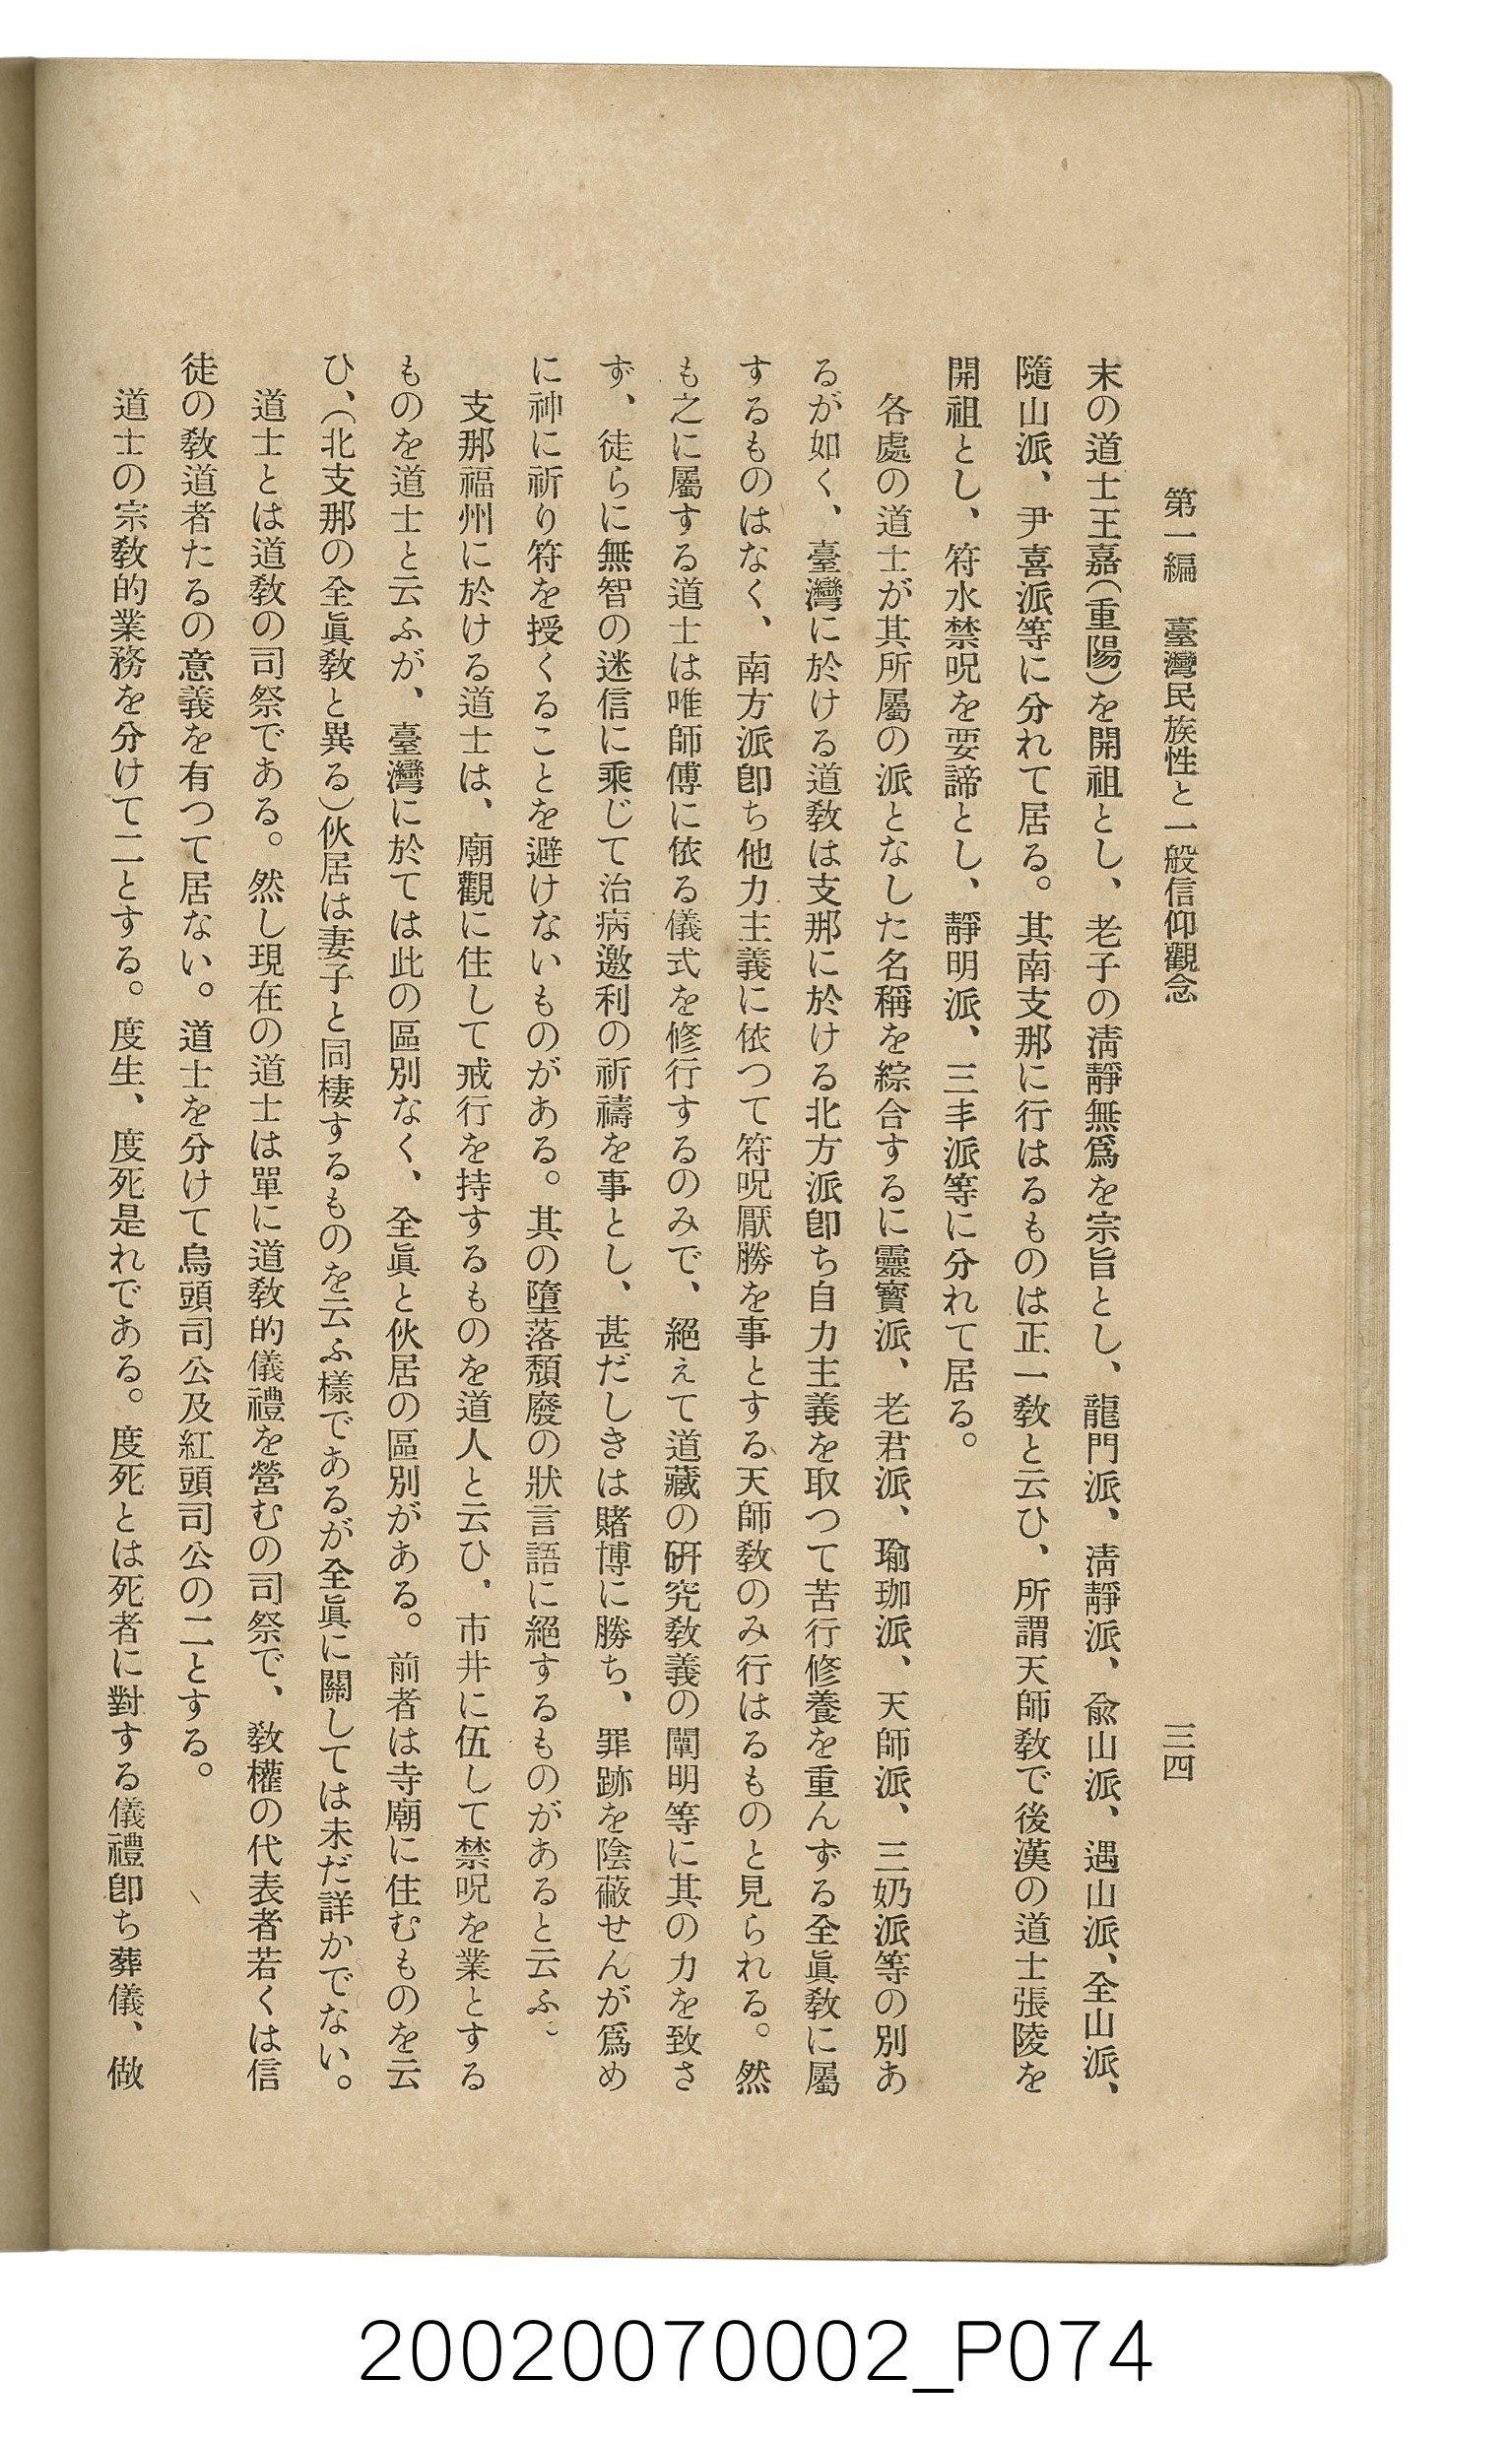 第一編　臺灣民族性と一般信仰觀念
三四
末の道士王嘉（重陽）を開祖とし、老子の淸靜無爲を宗旨とし、龍門派、淸靜派、兪山派、遇山派、全山派、
隨山派、尹喜派等に分れて居る。其南支那に行はるものは正一敎と云ひ、所謂天師敎で後漢の道士張陵を
開祖とし、符水禁呪を要諦とし、靜明派、三丰派等に分れて居る。
各處の道士が其所屬の派となした名稱を綜合するに靈寳派、老君派、瑜珈派、天師派、三奶派等の別あ
るが如く、臺灣に於ける道敎は支那に於ける北方派卽ち自力主義を取つて苦行修養を重んずる全眞敎に屬
するものはなく、南方派卽ち他力主義に依つて符呪厭勝を事とする天師敎のみ行はるものと見られる。然
も之に屬する道士は唯師傅に依る儀式を修行するのみで、絕えて道藏の硏究敎義の闡明等に其の力を致さ
ず、徒らに無智の迷信に乘じて治病邀利の祈禱を事とし、甚だしきは賭博に勝ち、罪跡を陰蔽せんが爲め
に神に祈り符を授くることを避けないものがある。其の墮落頽廢の狀言語に絕するものがあると云ふ。
支那福州に於ける道士は、廟觀に住して戒行を持するものを道人と云ひ、市井に伍して禁呪を業とする
ものを道士と云ふが、臺灣に於ては此の區別なく、全眞と伙居の區別がある。前者は寺廟に住むものを云
ひ、（北支那の全眞敎と異る）伙居は妻子と同棲するものを云ふ樣であるが全眞に關しては未だ詳かでない。
道士とは道敎の司祭である。然し現在の道士は單に道敎的儀禮を營むの司祭で、敎權の代表者若くは信
徒の敎道者たるの意義を有つて居ない。道士を分けて烏頭司公及紅頭司公の二とする。
道士の宗敎的業務を分けて二とする。度生、度死是れである。度死とは死者に對する儀禮卽ち葬儀、做
20020070002_P074